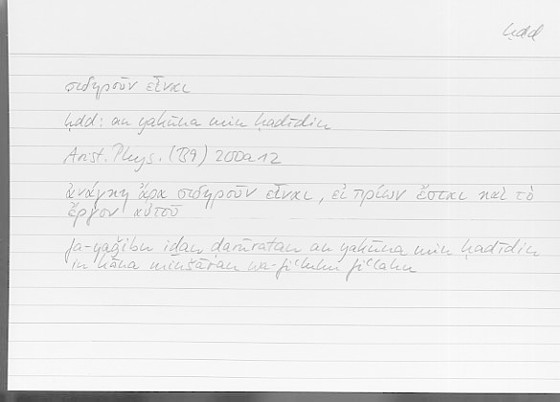 ḥdd
σιδηροῦν εἶναι
ḥdd: an yakūna min ḥadīdin
Arist. Phys. (B9) 200a12
ἀνάγκη ἄρα σιδηροῦν εἶναι, εἰ πρίων ἔσται καὶ τὸ
ἔργον αὐτοῦ
fa-yaǧibu iḏan ḍarūratan an yakūna min ḥadīdin
in kāna minšāran wa-fiʿluhu fiʿlahu